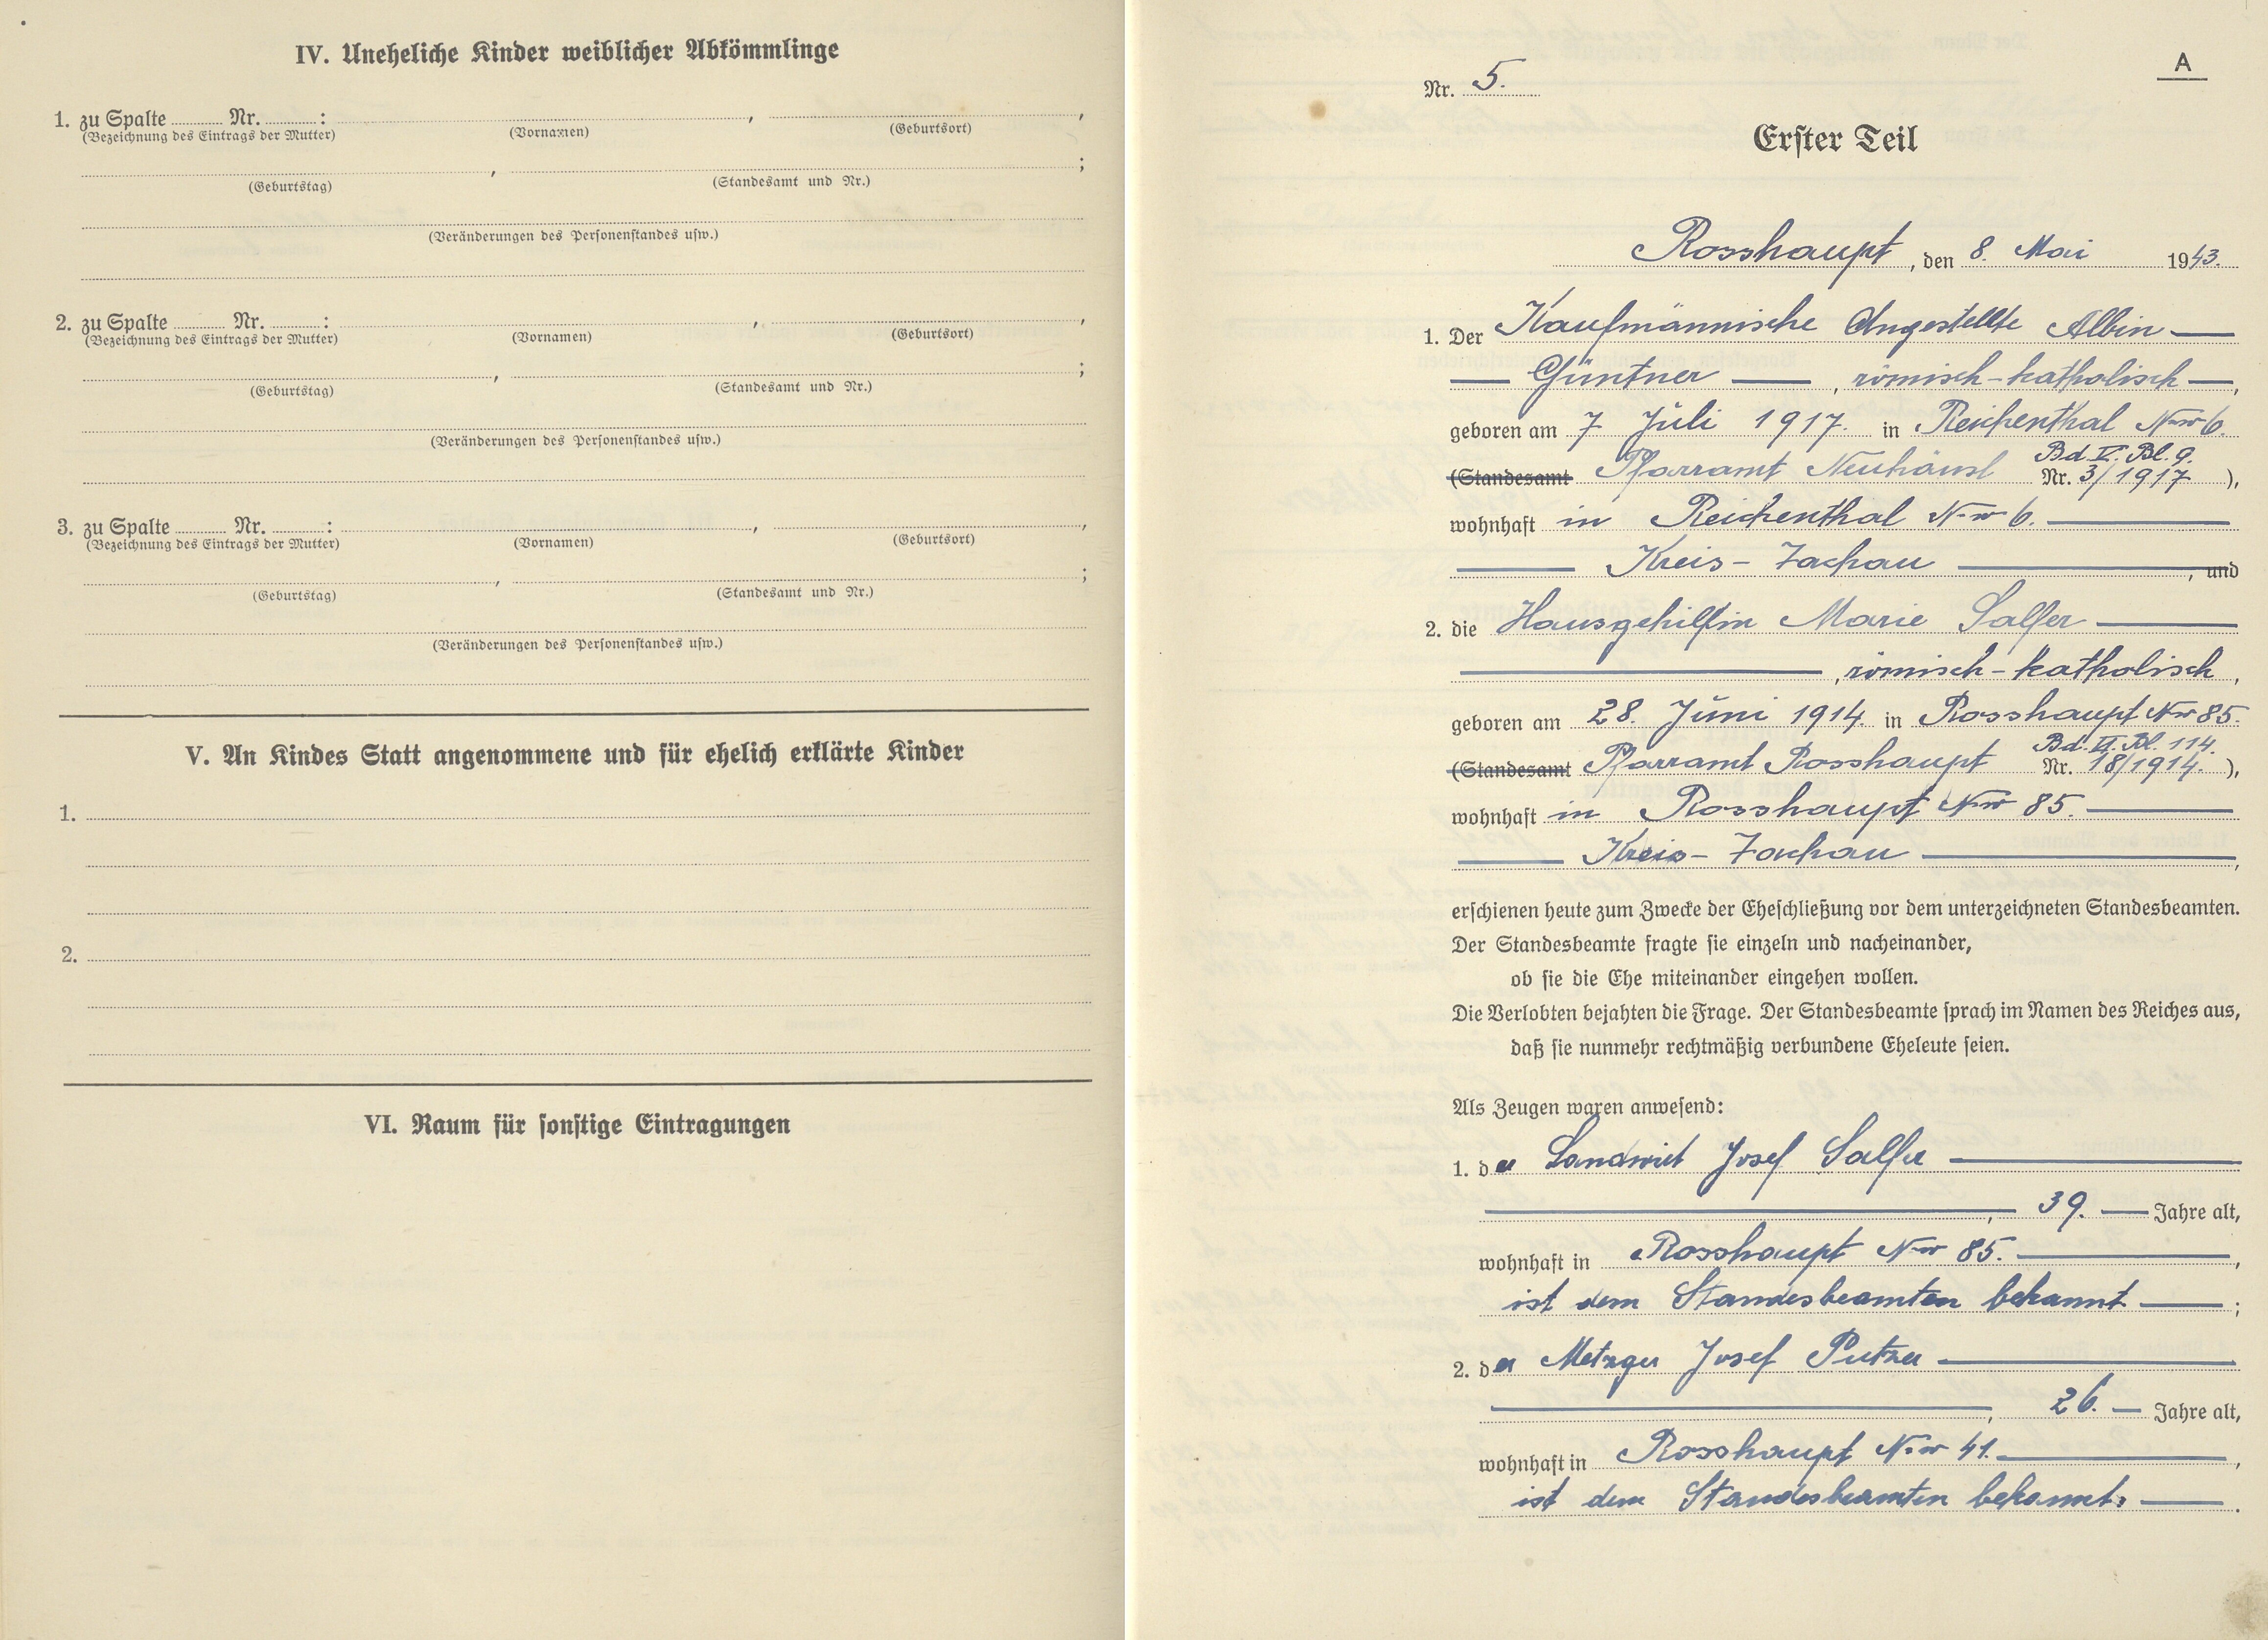 IV. Uneheliche Kinder weiblicher Abkömmlinge
1. zu Spalte ........ Nr. ........ :
(Bezeichnung des Eintrags der Mutter) (Vornamen) (Geburtsort)
(Geburtstag) (Standesamt und Nr.)
(Veränderungen des Personenstandes usw.)
2. zu Spalte ........ Nr. ........ :
(Bezeichnung des Eintrags der Mutter) (Vornamen) (Geburtsort)
(Geburtstag) (Standesamt und Nr.)
(Veränderungen des Personenstandes usw.)
3. zu Spalte ........ Nr. ........ :
(Bezeichnung des Eintrags der Mutter) (Vornamen) (Geburtsort)
(Geburtstag) (Standesamt und Nr.)
(Veränderungen des Personenstandes usw.)
V. An Kindes Statt angenommene und für ehelich erklärte Kinder
1.
2.
VI. Raum für sonstige Eintragungen
A
Nr. 5.
Erster Teil
Rosshaupt, den 8. Mai 1943.
1. Der Kaufmännische Angestellte Albin
Güntner, römisch-katholisch,
geboren am 7 Juli 1917. in Reichenthal No 6.
Bd. V. Bl. 9.
(Standesamt Pfarramt Neuhäusl Nr. 3/1917),
wohnhaft in Reichenthal No 6.
Kreis-Tachau, und
2. die Hausgehilfin Marie Salfer
, römisch-katholisch,
geboren am 28. Juni 1914. in Rosshaupt No 85.
Bd. VI. Bl. 114.
(Standesamt Pfarramt Rosshaupt Nr. 18/1914.),
wohnhaft in Rosshaupt No 85.
Kreis-Tachau,
erschienen heute zum Zwecke der Eheschließung vor dem unterzeichneten Standesbeamten.
Der Standesbeamte fragte sie einzeln und nacheinander,
ob sie die Ehe miteinander eingehen wollen.
Die Verlobten bejahten die Frage. Der Standesbeamte sprach im Namen des Reiches aus,
daß sie nunmehr rechtmäßig verbundene Eheleute seien.
Als Zeugen waren anwesend:
1. der Landwirt Josef Salfer
, 39. Jahre alt,
wohnhaft in Rosshaupt No 85.,
ist dem Standesbeamten bekannt;
2. der Metzger Josef Putzer
, 26. Jahre alt,
wohnhaft in Rosshaupt No 41.,
ist dem Standesbeamten bekannt.